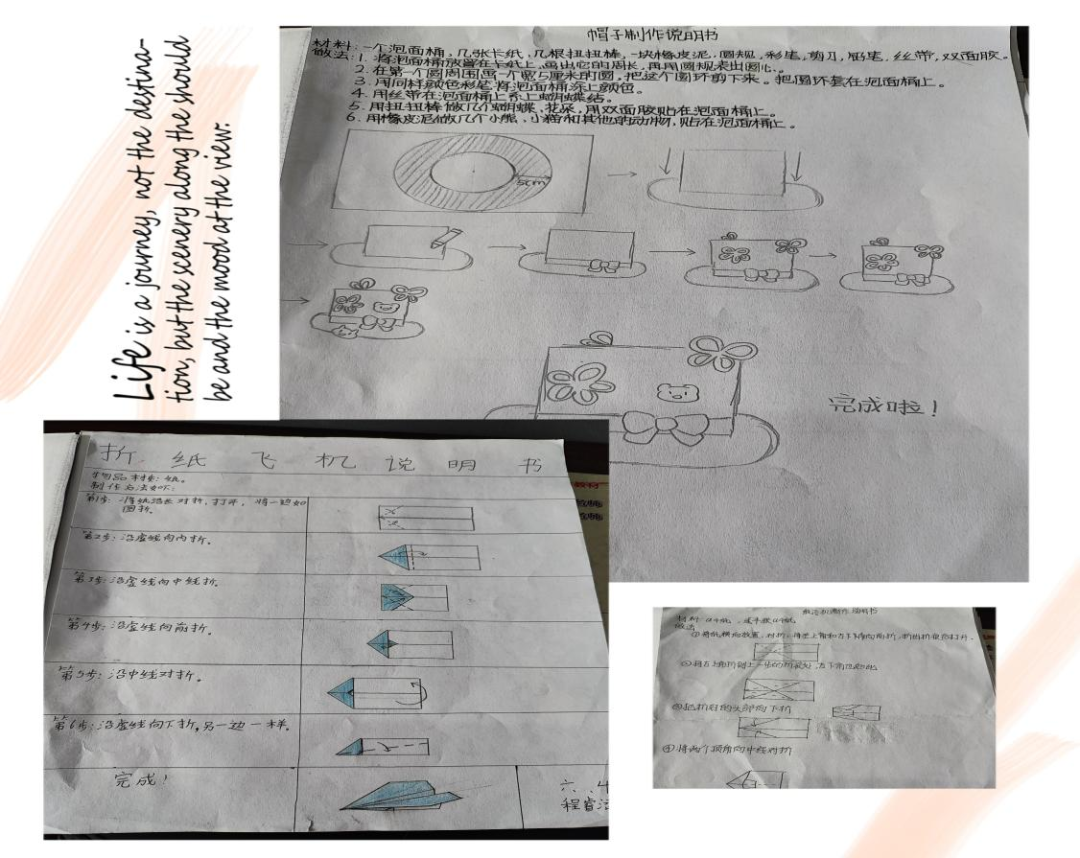 Life is a journey, not the destina-
tion, but the scenery along the should
be and the mood at the view.
帽子制作说明书
材料:一个泡面桶,几张卡纸,几根扭扭棒,一块橡皮泥,圆规,彩笔,剪刀,铅笔,丝带,双面胶。
做法:1. 将泡面桶放置在卡纸上,画出它的周长,再用圆规找出圆心。
2. 在第一个圆周围画一个宽5厘米的圆,把这个圆环剪下来。把圆环套在泡面桶上。
3. 用同样颜色彩笔将泡面桶涂上颜色。
4. 用丝带在泡面桶上系上蝴蝶结。
5. 用扭扭棒做几个蝴蝶,花朵,用双面胶贴在泡面桶上。
6. 用橡皮泥做几个小熊,小猫和其他的动物,贴在泡面桶上。
5cm
完成啦!
折纸飞机说明书
物品材料:纸。
制作方法如下:
第1步:将纸沿长对折,打开,将一边如
图折。
第2步:沿虚线向内折。
第3步:沿虚线向中线折。
第4步:沿虚线向前折。
第5步:沿中线对折。
第6步:沿虚线向下折,另一边一样。
完成!
教材
①将纸横向放置,对折,将左上角和左下角向内折,
③把折后的头部向下折
④将两个顶角向中线对折